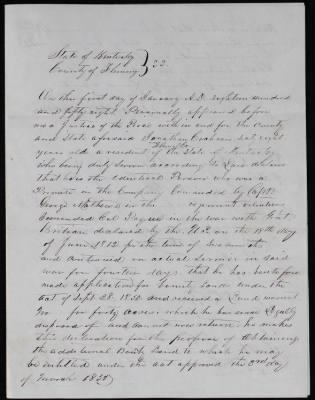 State of Kentucky
County of Fleming } SS.
On the first day of January A.D. eighteen hundred
and fifty eight Personally appeared before
me a Justice of the Peace within and for the County
and State aforesaid Jonathan Graham
years old a resident of Fleming Co the State of Kentucky
who being duly sworn according to Law declares
that he is the identical Person who was a
Private in the Company Commanded by Capt
George Mathews in the regiment volunteers
Commanded Col in the war with Great
Britain declared by the U.S. on the 18th day
of June 1812 for the term of Six months
and continued in actual service in said
war for fourteen days that he has heretofore
made application for bounty Land under the
act of Sept 28 1850 and received a Land warrant
No for forty acres which he has since Legally
disposed of and can not now return he makes
this declaration for the purpose of obtaining
the additional Bounty Land to which he may
be entitled under the act approved the 3rd day
of March 1855